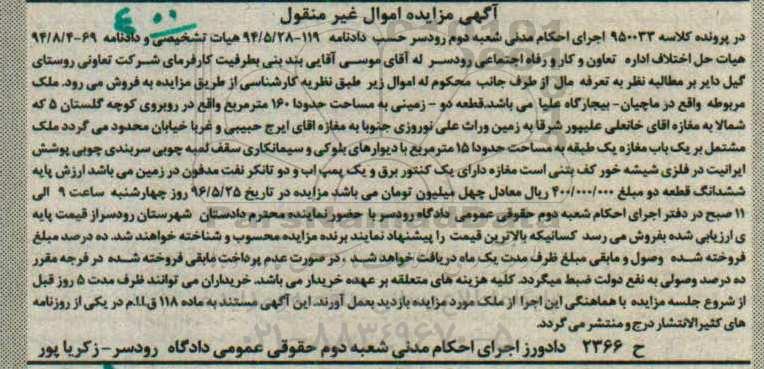 آگهی مزایده اموال غیر منقول
در پرونده کلاسه ۹۵۰۰۳۳ اجرای احکام مدنی شعبه دوم رودسر حسب دادنامه ۱۱۹-۹۴/۵/۲۸ هیات تشخیص و دادنامه ۶۹-۹۴/۸/۴
هیات حل اختلاف اداره تعاون و کار و رفاه اجتماعی رودسر له آقای موسی آقایی بند بنی بطرفیت کارفرمای شرکت تعاونی روستای
گیل دایر بر مطالبه نظر به تعرفه مال از طرف جانب محکوم له اموال زیر طبق نظریه کارشناسی از طریق مزایده به فروش می رود. ملک
مربوطه واقع در ماچیان- بیجارگاه علیا می باشد.قطعه دو - زمینی به مساحت حدودا ۱۶۰ مترمربع واقع در روبروی کوچه گلستان ۵ که
شمالا به مغازه اقای خانعلی علیپور شرقا به زمین وراث علی نوروزی جنوبا به مغازه اقای ایرج حبیبی و غربا خیابان محدود می گردد ملک
مشتمل بر یک باب مغازه یک طبقه به مساحت حدودا ۱۵ مترمربع با دیوارهای بلوکی و سیمانکاری سقف لمبه چوبی سربندی چوبی پوشش
ایرانیت در فلزی شیشه خور کف بتنی است مغازه دارای یک کنتور برق و یک پمپ اب و دو تانکر نفت مدفون در زمین می باشد ارزش پایه
ششدانگ قطعه دو مبلغ ۴۰۰/۰۰۰/۰۰۰ ریال معادل چهل میلیون تومان می باشد مزایده در تاریخ ۹۶/۵/۲۵ روز چهارشنبه ساعت ۹ الی
۱۱ صبح در دفتر اجرای احکام شعبه دوم حقوقی عمومی دادگاه رودسر با حضور نماینده محترم دادستان شهرستان رودسراز قیمت پایه
ی ارزیابی شده بفروش می رسد کسانیکه بالاترین قیمت را پیشنهاد نمایند برنده مزایده محسوب و شناخته خواهند شد. ده درصد مبلغ
فروخته شده وصول و مابقی مبلغ ظرف مدت یک ماه دریافت خواهد شد . در صورت عدم پرداخت مابقی فروخته شده در فرجه مقرر
ده درصد وصولی به نفع دولت ضبط میگردد. کلیه هزینه های متعلقه بر عهده خریدار می باشد. خریداران می توانند ظرف مدت ۵ روز قبل
از شروع جلسه مزایده با هماهنگی این اجرا از ملک مورد مزایده بازدید بعمل آورند. این آگهی مستند به ماده ۱۱۸ ق.ا.ا.م در یکی از روزنامه
های کثیرالانتشار درج و منتشر می گردد.
ح ۲۳۶۶ دادورز اجرای احکام مدنی شعبه دوم حقوقی عمومی دادگاه رودسر- زکریا پور
۰۲۱-۸۸۳۴۹۶۷۰-۵